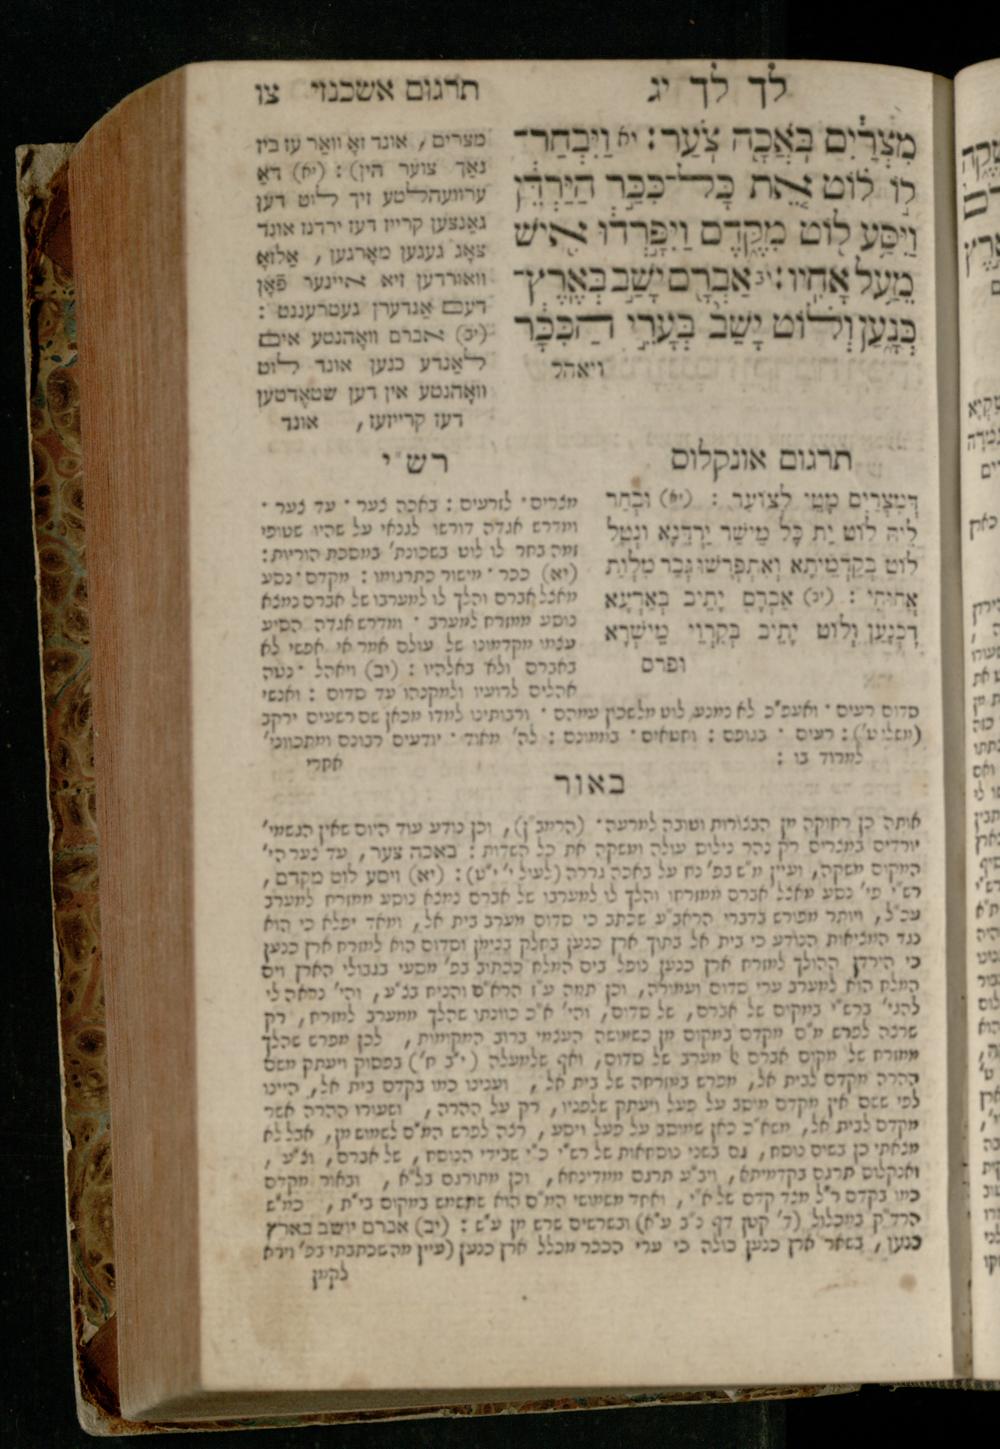 לך לך יג
תרגום אשכנזי צו
מִצְרַיִם בֹּאֲכָה צֹעַר׃ יא וַיִּבְחַר־
לוֹ לוֹט אֵת כָּל־כִּכַּר הַיַּרְדֵּן
וַיִּסַּע לוֹט מִקֶּדֶם וַיִּפָּרְדוּ אִישׁ
מֵעַל אָחִיו׃ יב אַבְרָם יָשַׁב בְּאֶרֶץ־
כְּנָעַן וְלוֹט יָשַׁב בְּעָרֵי הַכִּכָּר
ויאהל
מצרים, אונד זאָ וואַר עז ביז
נאַך צוער הין): (יא) דאַ
ערוועהלטע זיך לוט דען
גאַנצען קרייז דעז ירדנז אונד
צאָג געגען מאָרגען, אַלזאָ
וואורדען זיא איינער פֿאָן
דעם אַנדערן געטרעננט:
(יב) אברם וואָהנטע אים
לאַנדע כנען אונד לוט
וואָהנטע אין דען שטאָדטען
דעז קרייזעז, אונד
תרגום אונקלוס
דְמִצְרַיִם מָטֵי לְצוֹעַר: (יא) וּבְחַר
לֵיהּ לוֹט יָת כָּל מֵישַׁר יַרְדְּנָא וּנְטַל
לוֹט בְּקַדְמֵיתָא וְאִתְפָּרְשׁוּ גְּבַר מִלְּוַת
אֲחוּהִי: (יב) אַבְרָם יָתֵיב בְּאַרְעָא
דִכְנָעַן וְלוֹט יָתֵיב בְּקִרְוֵי מֵישְׁרָא
ופרס
רש״י
מצרים · לזרעים: באכה צער · עד צער ·
ומדרש אגדה דורשו לגנאי על שהיו שטופי
זמה בחר לו לוט בשכונת׳ במסכת הוריות:
(יא) ככר · מישור כתרגומו: מקדם · נסע
מאצל אברם והלך לו למערבו של אברם נמצא
נוסע ממזרח למערב · ומדרש אגדה הסיע
עצמו מקדמונו של עולם אמר אי אפשי לא
באברם ולא באלהיו: (יב) ויאהל · נטה
אהלים לרועיו ולמקנהו עד סדום: ואנשי
סדום רעים · ואעפ״כ לא נמנע לוט מלשכון עמהם · ורבותינו למדו מכאן שם רשעים ירקב
(משלי ט׳): רעים · בגופם: וחטאים · בממונם: לה׳ מאוד · יודעים רבונם ומתכווני׳
למרוד בו:
אחרי
באור
אותה כן רחוקה מן הבצורות וטובה למרעה · (הרמב״ן), וכן נודע עוד היום שאין הגשמי׳
יורדים במצרים רק נהר נילוס עולה ומשקה את כל השדות: באכה צער, עד צער הי׳
המקום משקה, ועיין מ״ש בפ׳ נח על באכה גררה (לעיל י׳ י״ט): (יא) ויסע לוט מקדם,
רש״י פי׳ נסע מאצל אברם ממזרחו והלך לו למערבו של אברם נמצא נוסע ממזרח למערב
עכ״ל, ויותר מפורש בדברי הראב״ע שכתב כי סדום מערב בית אל, ומאד יפלא כי הוא
נגד המציאות הנודע כי בית אל בתוך ארץ כנען בחלק בנימן וסדום הוא למזרח ארץ כנען
כי הירדן ההולך למזרח ארץ כנען נופל בים המלח ככתוב בפ׳ מסעי בגבולי הארץ וים
המלח הוא למערב ערי סדום ועמורה, וכן תמה ע״ז הרא״ם והניח בצ״ע, והי׳ נראה לי
להגי׳ ברש״י במקום של אברם, של סדום, והי׳ א״כ כוונתו שהלך ממערב למזרח, רק
שרצה לפרש מ״ם מקדם במקום מן כשמושה העצמי ברוב המקומות, לכן מפרש שהלך
ממזרח של מקום אברם למערב של סדום, ואף שלמעלה (י״ב ח׳) בפסוק ויעתק משם
ההרה מקדם לבית אל, מפרש במזרחה של בית אל, וענינו כמו בקדם בית אל, היינו
לפי ששם אין מקדם מוסב על פעל ויעתק שלפניו, רק על ההרה, ושעורו ההרה אשר
מקדם לבית אל, משא״כ כאן שמוסב על פעל ויסע, רצה לפרש המ״ם לשמוש מן, אבל לא
מצאתי כן בשום נוסח, גם בשני נוסחאות של רש״י כ״י שבידי הנוסח, של אברם, וצ״ע,
ואנקלוס תרגם בקדמיתא, ויב״ע תרגם ממדינחא, וכן מתורגם בל״א, ובאור מקדם
כמו בקדם ר״ל מצד קדם של א״י, ואחד משמושי המ״ם הוא שתשמש במקום בי״ת, כמ״ש
הרד״ק במכלול (ד׳ קטן דף נ״ב ע״א) ובשרשים שרש מן ע״ש: (יב) אברם יושב בארץ
כנען, בשאר ארץ כנען כולה כי ערי הככר מכלל ארץ כנען (עיין מה שכתבתי בפ׳ וירא
לקמן